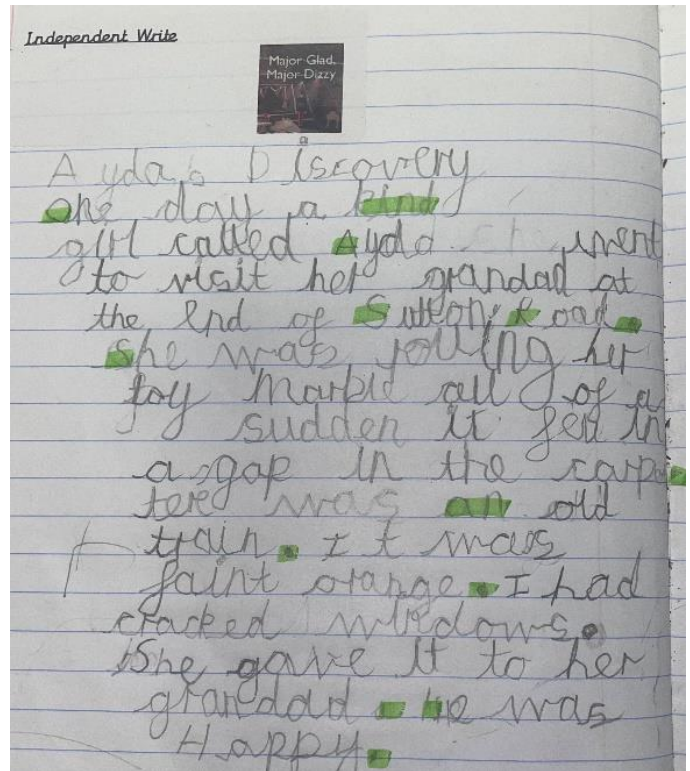 Independent Write
Major Glad,
Major Dizzy
Ayda's Discovery
One day a kind
girl called Ayda went
to visit her grandad at
the end of Sutton Road.
She was rolling her
toy marble all of a
sudden it fell in
a gap in the carp.
tere was an old
train. It was
faint orange. I had
cracked windows.
She gave it to her
grandad. He was
Happy.